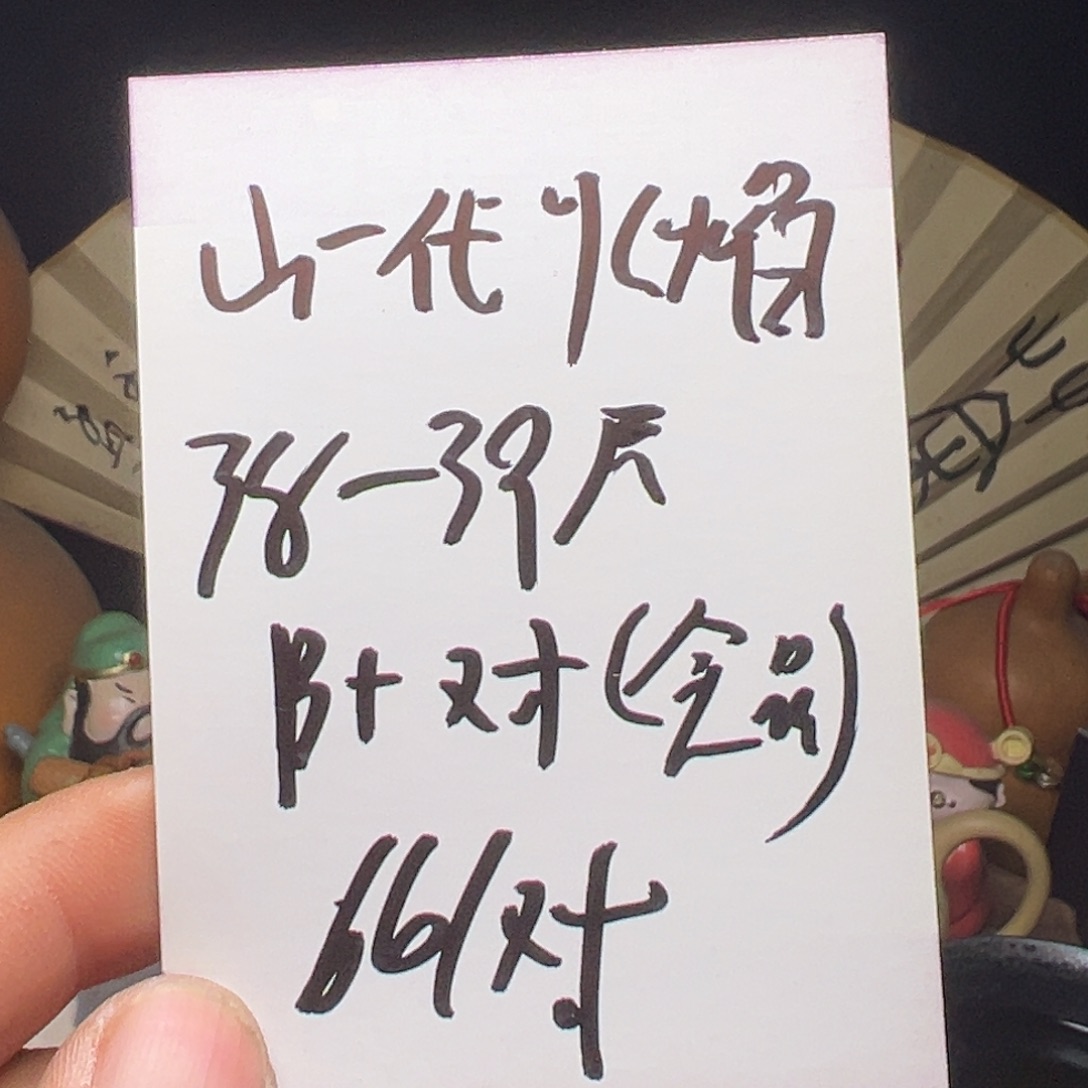 山一代火焰
38-39尺
B+对(全品)
661对